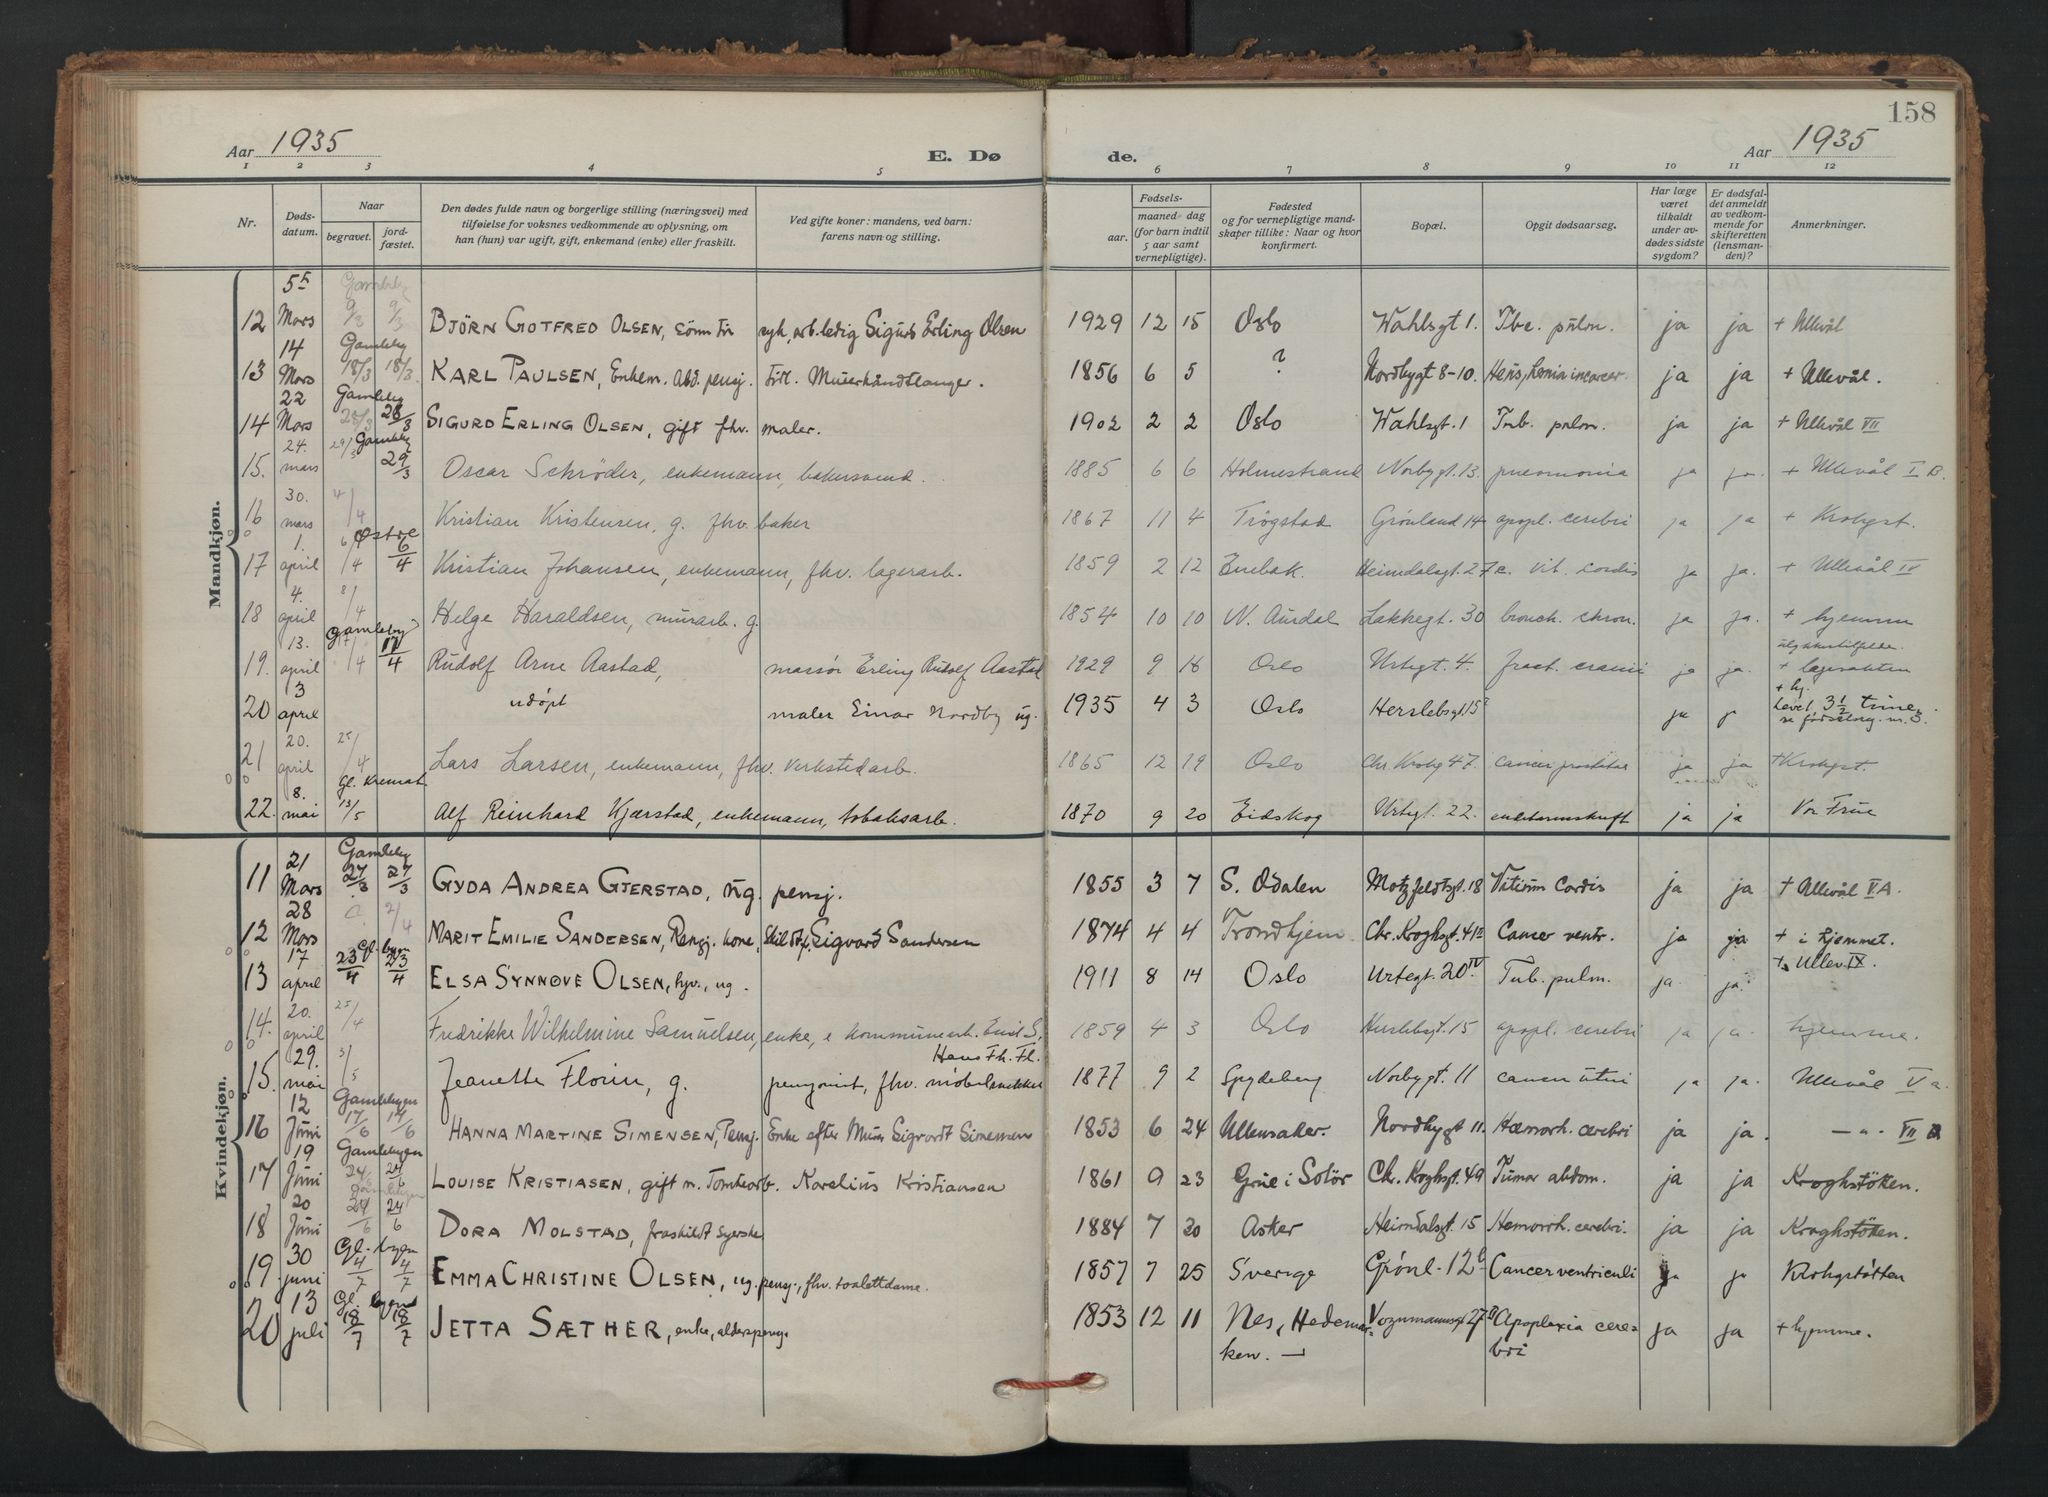 158
Aar 1935 E. Dø de. Aar 1935
1 2 3 4 5 6 7 8 9 10 11 12
Nr. Døds-datum. Naar begravet. jord-fæstet. Den dødes fulde navn og borgerlige stilling (næringsvei) med tilføielse for voksnes vedkommende av oplysning, om han (hun) var ugift, gift, enkemand (enke) eller fraskilt. Ved gifte koner: mandens, ved barn: farens navn og stilling. Fødsels- aar. maaned dag (for barn indtil 5 aar samt vernepligtige). Fødested og for vernepligtige mand-skaper tillike: Naar og hvor konfirmert. Bopæl. Opgit dødsaarsag. Har læge været tilkaldt under av-dødes sidste sygdom? Er dødsfal-det anmeldt av vedkom-mende for skifteretten (lensman-den)? Anmerkninger.
Mandkjøn.
12 5 Mars 9/3 9/3 BJÖRN GOTFRED OLSEN, sönn for syk, arb.ledig Sigurd Erling Olsen 1929 12 15 Oslo Wahlsgt 1. Tbc. pulm. ja ja + Ullevål
13 14 Mars Gamleby 18/3 18/3 KARL PAULSEN, Enkem. Abd. pensj. tidl. Murerhåndtlanger. 1856 6 5 ? Nordbygt 8-10. hernia incarcer. ja ja + Ullevål.
14 22 Mars Gamleby 28/3 28/3 SIGURD ERLING OLSEN, gift fhv. maler. 1902 2 2 Oslo Wahlsgt. 1 Tub. pulm. ja ja + Ullevål VII
15. 24. mars 29/3 Gamleby 29/3 Oscar Schrøder, enkemann, bakersvend. 1885 6 6 Holmestrand Norbygt. 13. pneumonia ja ja. + Ullevål I B.
16 30. mars 4/4 Kristian Kristensen, g. fhv. baker 1867 11 4 Trøgstad Grønland 14 apopl. cerebri ja ja + Krohgst.
17 1. april 6/4 Østre 6/4 Kristian Johansen, enkemann, fhv. lagerarb. 1859 2 12 Enebak. Heimdalsgt. 27c. vit. cordis ja ja. + Ullevål IV
18 4. april 8/4 Helge Haraldsen, murarb. g. 1854 10 10 N. Aurdal Lakkegt. 30 bronch. chron. ja ja. + hjemme
19. 13. april Gamleby 17/4 17/4 Rudolf Arne Aastad, massør Erling Rudolf Aastad 1929 9 18 Oslo Urtegt. 4. fract. cranii ja ja. ulykkestilfelde. + lægevakten
20 3 april udöpt maler Einar Nordby ug. 1935 4 3 Oslo Herslebsgt 15 ja + hj. Levet 3 1/2 time. se fødselreg. nr. 3.
21 20. april 25/4 Lars Larsen, enkemann, fhv. verkstedarb. 1865 12 19 Oslo Chr. Krohg 47. cancer prostatae ja ja + Krohgst.
22. 8. mai Gl. Kremat. 13/5 Alf Reinhard Kjærstad, enkemann, tobaksarb. 1870 9 20 Eidskog Urtegt. 22. ja ja Vor Frue
Kvindekjøn.
11 21 Mars Gamleby 27/3 27/3 GYDA ANDREA GJERSTAD, ug. pensj. 1855 3 7 S. Odalen Motzfeldtsgt. 18 Vitium Cordis ja ja + Ullevål VA.
12 28 Mars 2/4 MARIT EMILIE SANDERSEN, Rengj. kone, Skildt f. Sigvard Sandersen 1874 4 4 Trondhjem. Chr. Kroghsgt. 41 Cancer ventr. ja ja + i hjemmet.
13 17 april Gl. byen 23/4 23/4 ELSA SYNNØVE OLSEN, hjv., ug. 1911 8 14 Oslo Urtegt. 20 IV Tub. pulm. ja. ja. + Ullev. IX.
14. 20. april 25/4 Fredrikke Wilhelmine Samuelsen, enke, e kommunearb. Emil S. 1859 4 3 Oslo Herslebsgt. 15 apopl. cerebri ja ja. hjemme.
15. 29. mai 3/5 Jeanette Florin, g. pensjonist, fhv. møbelsnekker Hans Fh. Fl. 1877 9 2 Spydeberg Norbygt. 11 cancer uteri ja ja. Ullevål V a.
16 12 Juni Gamlebyen 17/6 17/6 HANNA MARTINE SIMENSEN, Pensj. Enke efter Murer Sigvardt Simensen 1853 6 24 Ullensaker. Nordbygt 11. Hæmorh. cerebri ja ja. — " — VII
17 19 Juni Gamlebyen 24/6 24/6 LOUISE KRISTIASEN, gift m. Tomtearb. Karelius Kristiansen 1861 9 23 Grue i Solör Chr. Kroghsgt. 49 Tumor abdom. ja ja Kroghstötten.
18 20 Juni Gamlebyen 24/6 24/6 DORA MOLSTAD, fraskildt Syerske 1884 7 20 Asker Heimdalsgt. 15 Hemorrh. cerebri. ja ja Kroghstötten.
19 30 juni Gl. byen 4/7 4/7 EMMA CHRISTINE OLSEN, ug. pensj., fhv. toalettdame. 1857 7 25 Sverige Grönl. 12 b Cancer ventriculi ja ja Krohgstötten
20 13 juli Gl. byen 18/7 18/7 JETTA SÆTHER, enke, alderspensj. 1853 12 11 Nes, Hedemarken. — 27 Apoplexia cerebri ja ja + hjemme.